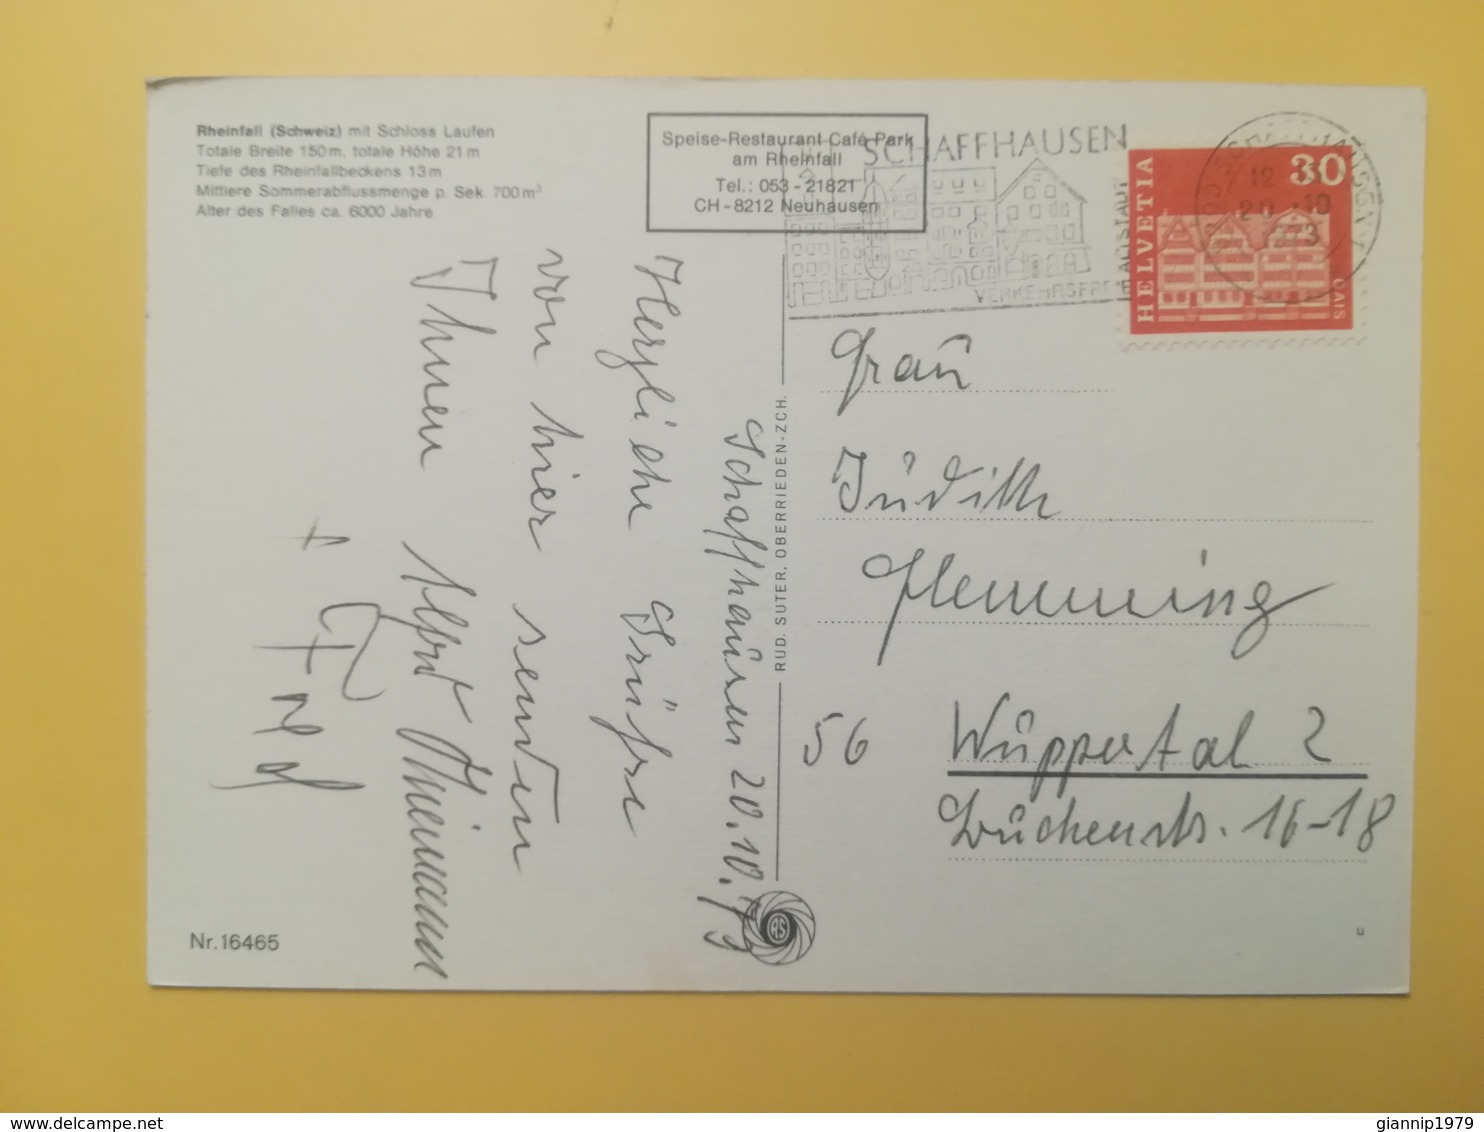 Rheinfall (Schweiz) mit Schloss Laufen
Totale Breite 150 m, totale Höhe 21 m
Tiefe des Rheinfallbeckens 13 m
Mittlere Sommerabflussmenge p. Sek. 700 m³
Alter des Falles ca. 6000 Jahre
Speise-Restaurant Café Park
am Rheinfall
Tel.: 053 - 21821
CH - 8212 Neuhausen
SCHAFFHAUSEN
VERKEHRSFREIE ALTSTADT
12
20.10
73
HELVETIA
30
GAIS
Schaffhausen 20.10.73
Herzliche Grüße
von hier senden
Ihnen Alfred
+
Fred
RUD. SUTER, OBERRIEDEN-ZCH.
RS
Frau
Judith
Flemming
56 Wuppertal 2
16-18
Nr. 16465
u
delcampe.net
giannip1979